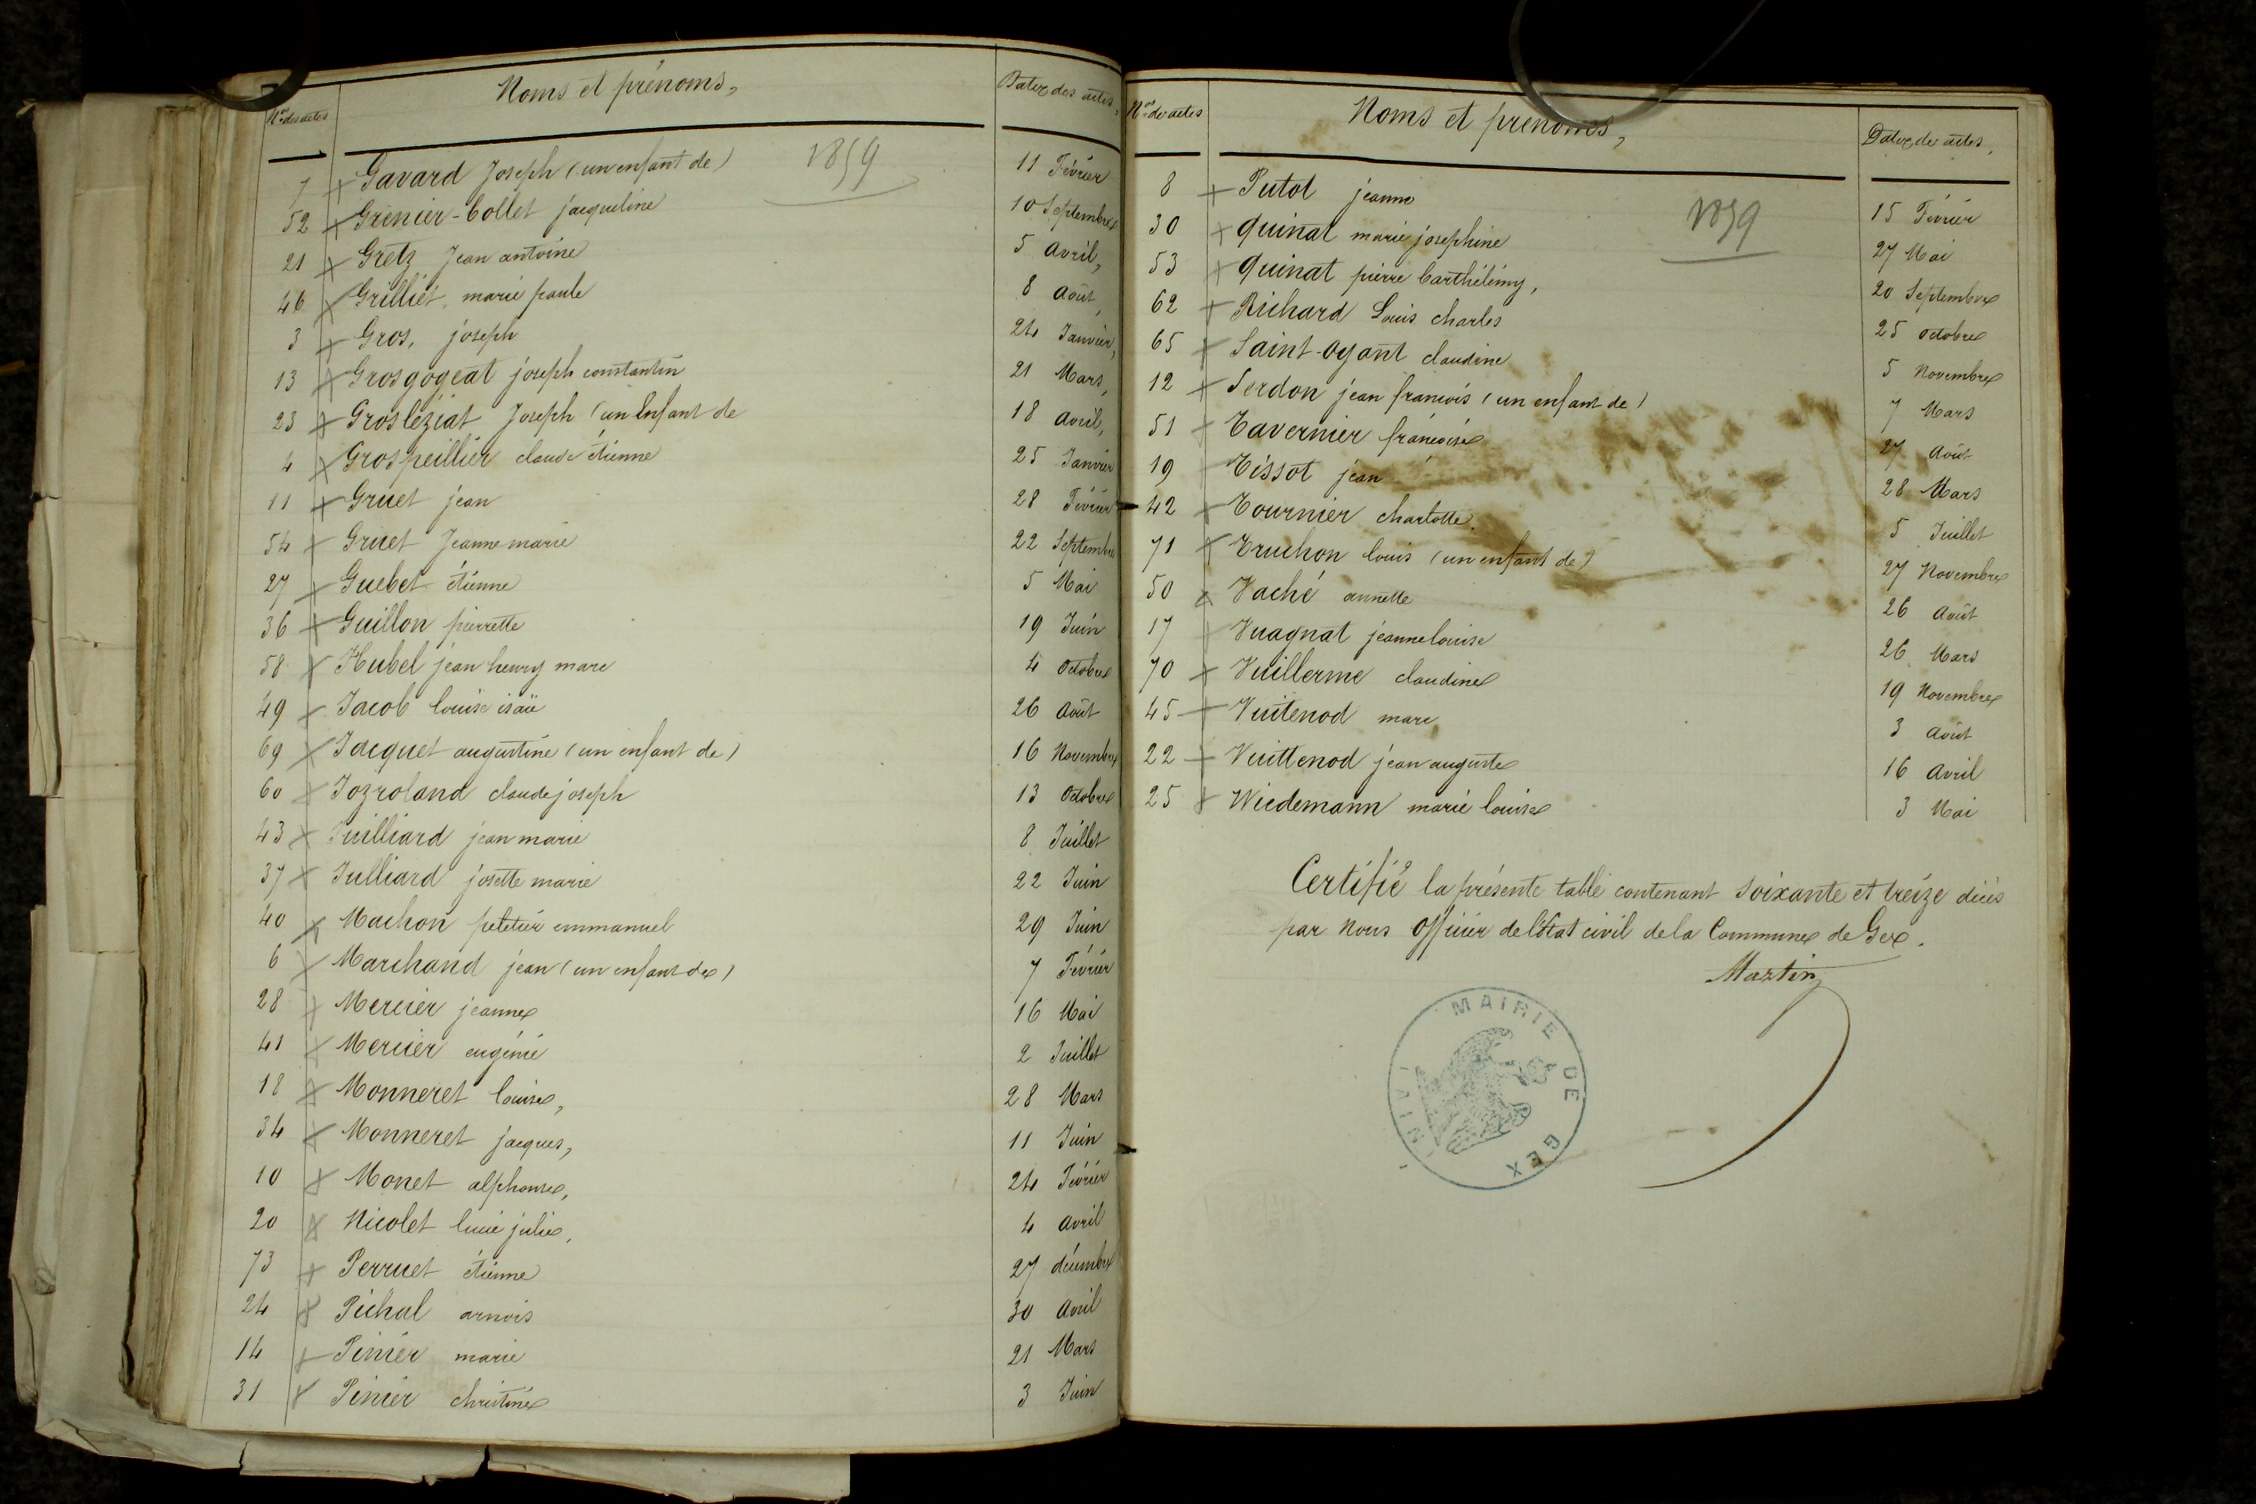 Nos des actes Noms et prénoms, Dates des actes,
1859
7 Gavard Joseph (un enfant de) 11 Février
52 Grenier-Collet jacqueline 10 Septembre
21 Gretz Jean antoine 5 avril,
46 Grilliet marie paule 8 août
3 Gros, joseph 24 Janvier,
13 Grosgogeat joseph constantin 21 Mars,
23 Grosléziat Joseph (un enfant de 18 avril,
4 Grospeillier claude étienne 25 Janvier
11 Gruet jean 28 Février
54 Gruet Jeanne marie 22 Septembre
27 Guebet étienne 5 Mai
36 Guillon pierrette 19 Juin
58 Hubel jean henry marc 4 octobre
49 Jacob louise 26 août
69 Jacquet augustine (un enfant de) 16 Novembre
60 Jozroland claude joseph 13 octobre
43 Juilliard jean marie 8 Juillet
37 Julliard josette marie 22 Juin
40 Machon emmanuel 29 Juin
6 Marchand jean (un enfant de) 7 Février
28 Mercier jeanne 16 Mai
41 Mercier eugénie 2 Juillet
18 Monneret louise, 28 Mars
34 Monneret jacques, 11 Juin
10 Monet alphonse, 24 Février
20 Nicolet lucie julie, 4 avril
73 Perruet étienne 27 décembre
24 Pichal 30 avril
14 Pinier marie 21 Mars
31 Pinier christine 3 Juin
Nos des actes Noms et prénoms, Dates des actes,
1859
8 Putod jeanne 15 Février
30 quinat marie josephine 27 Mai
53 quinat pierre barthélémy, 20 Septembre
62 Richard Louis charles 25 octobre
65 Saint-oyant claudine 5 Novembre
12 Serdon jean francois (un enfant de) 7 Mars
51 Tavernier françoise 27 août
19 Tissot jean 28 Mars
42 Tournier charlotte 5 Juillet
71 Truchon louis (un enfant de) 27 Novembre
50 Vaché annette 26 août
17 Vuagnat jeanne louise 26 Mars
70 Vuillerme claudine 19 Novembre
45 Vuitenod marc, 3 août
22 Vuittenod jean auguste 16 avril
25 Wiedemann marie louise 3 Mai
Certifié la présente table contenant soixante et treize décès
par nous officier de l'état civil de la Commune de Gex.
Martin
MAIRIE DE GEX
(AIN)